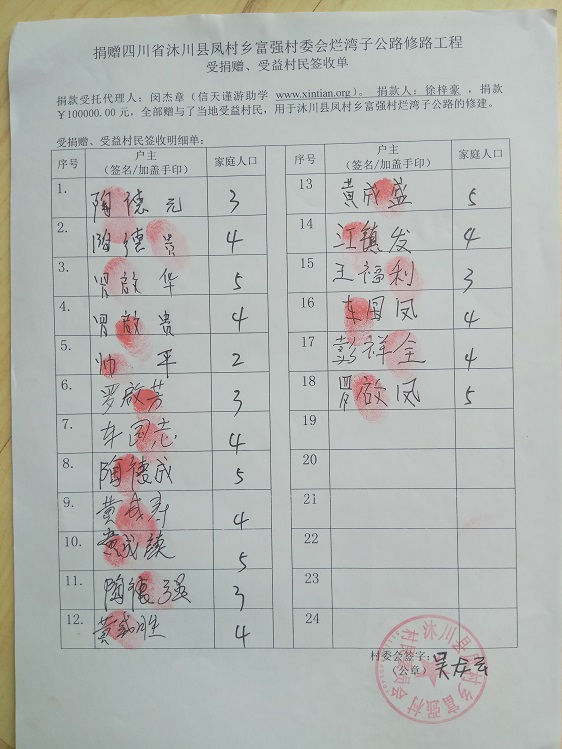 捐赠四川省沐川县凤村乡富强村委会烂湾子公路修路工程
受捐赠、受益村民签收单
捐款受托代理人：闵杰章（信天谨游助学 www.xintian.org）。 捐款人：徐梓豪 ，捐款
￥100000.00 元，全部赠与了当地受益村民，用于沐川县凤村乡富强村烂湾子公路的修建。
受捐赠、受益村民签收明细单：
序号 户主 （签名/加盖手印） 家庭人口
1. 陶德元 3
2. 陶德贵 4
3. 启华 5
4. 启贵 4
5. 帅平 2
6. 罗启芳 3
7. 车国志 4
8. 陶德成 5
9. 黄成寿 4
10. 黄成续 5
11. 陶德强 3
12. 黄成 4
序号 户主 （签名/加盖手印） 家庭人口
13 黄成盛 5
14 江镇发 4
15 王福利 3
16 车国凤 4
17 彭祥全 4
18 启凤 5
19
20
21
22
23
24
村委会签字：吴
（公章）
沐川县凤村乡富强村村民委员会